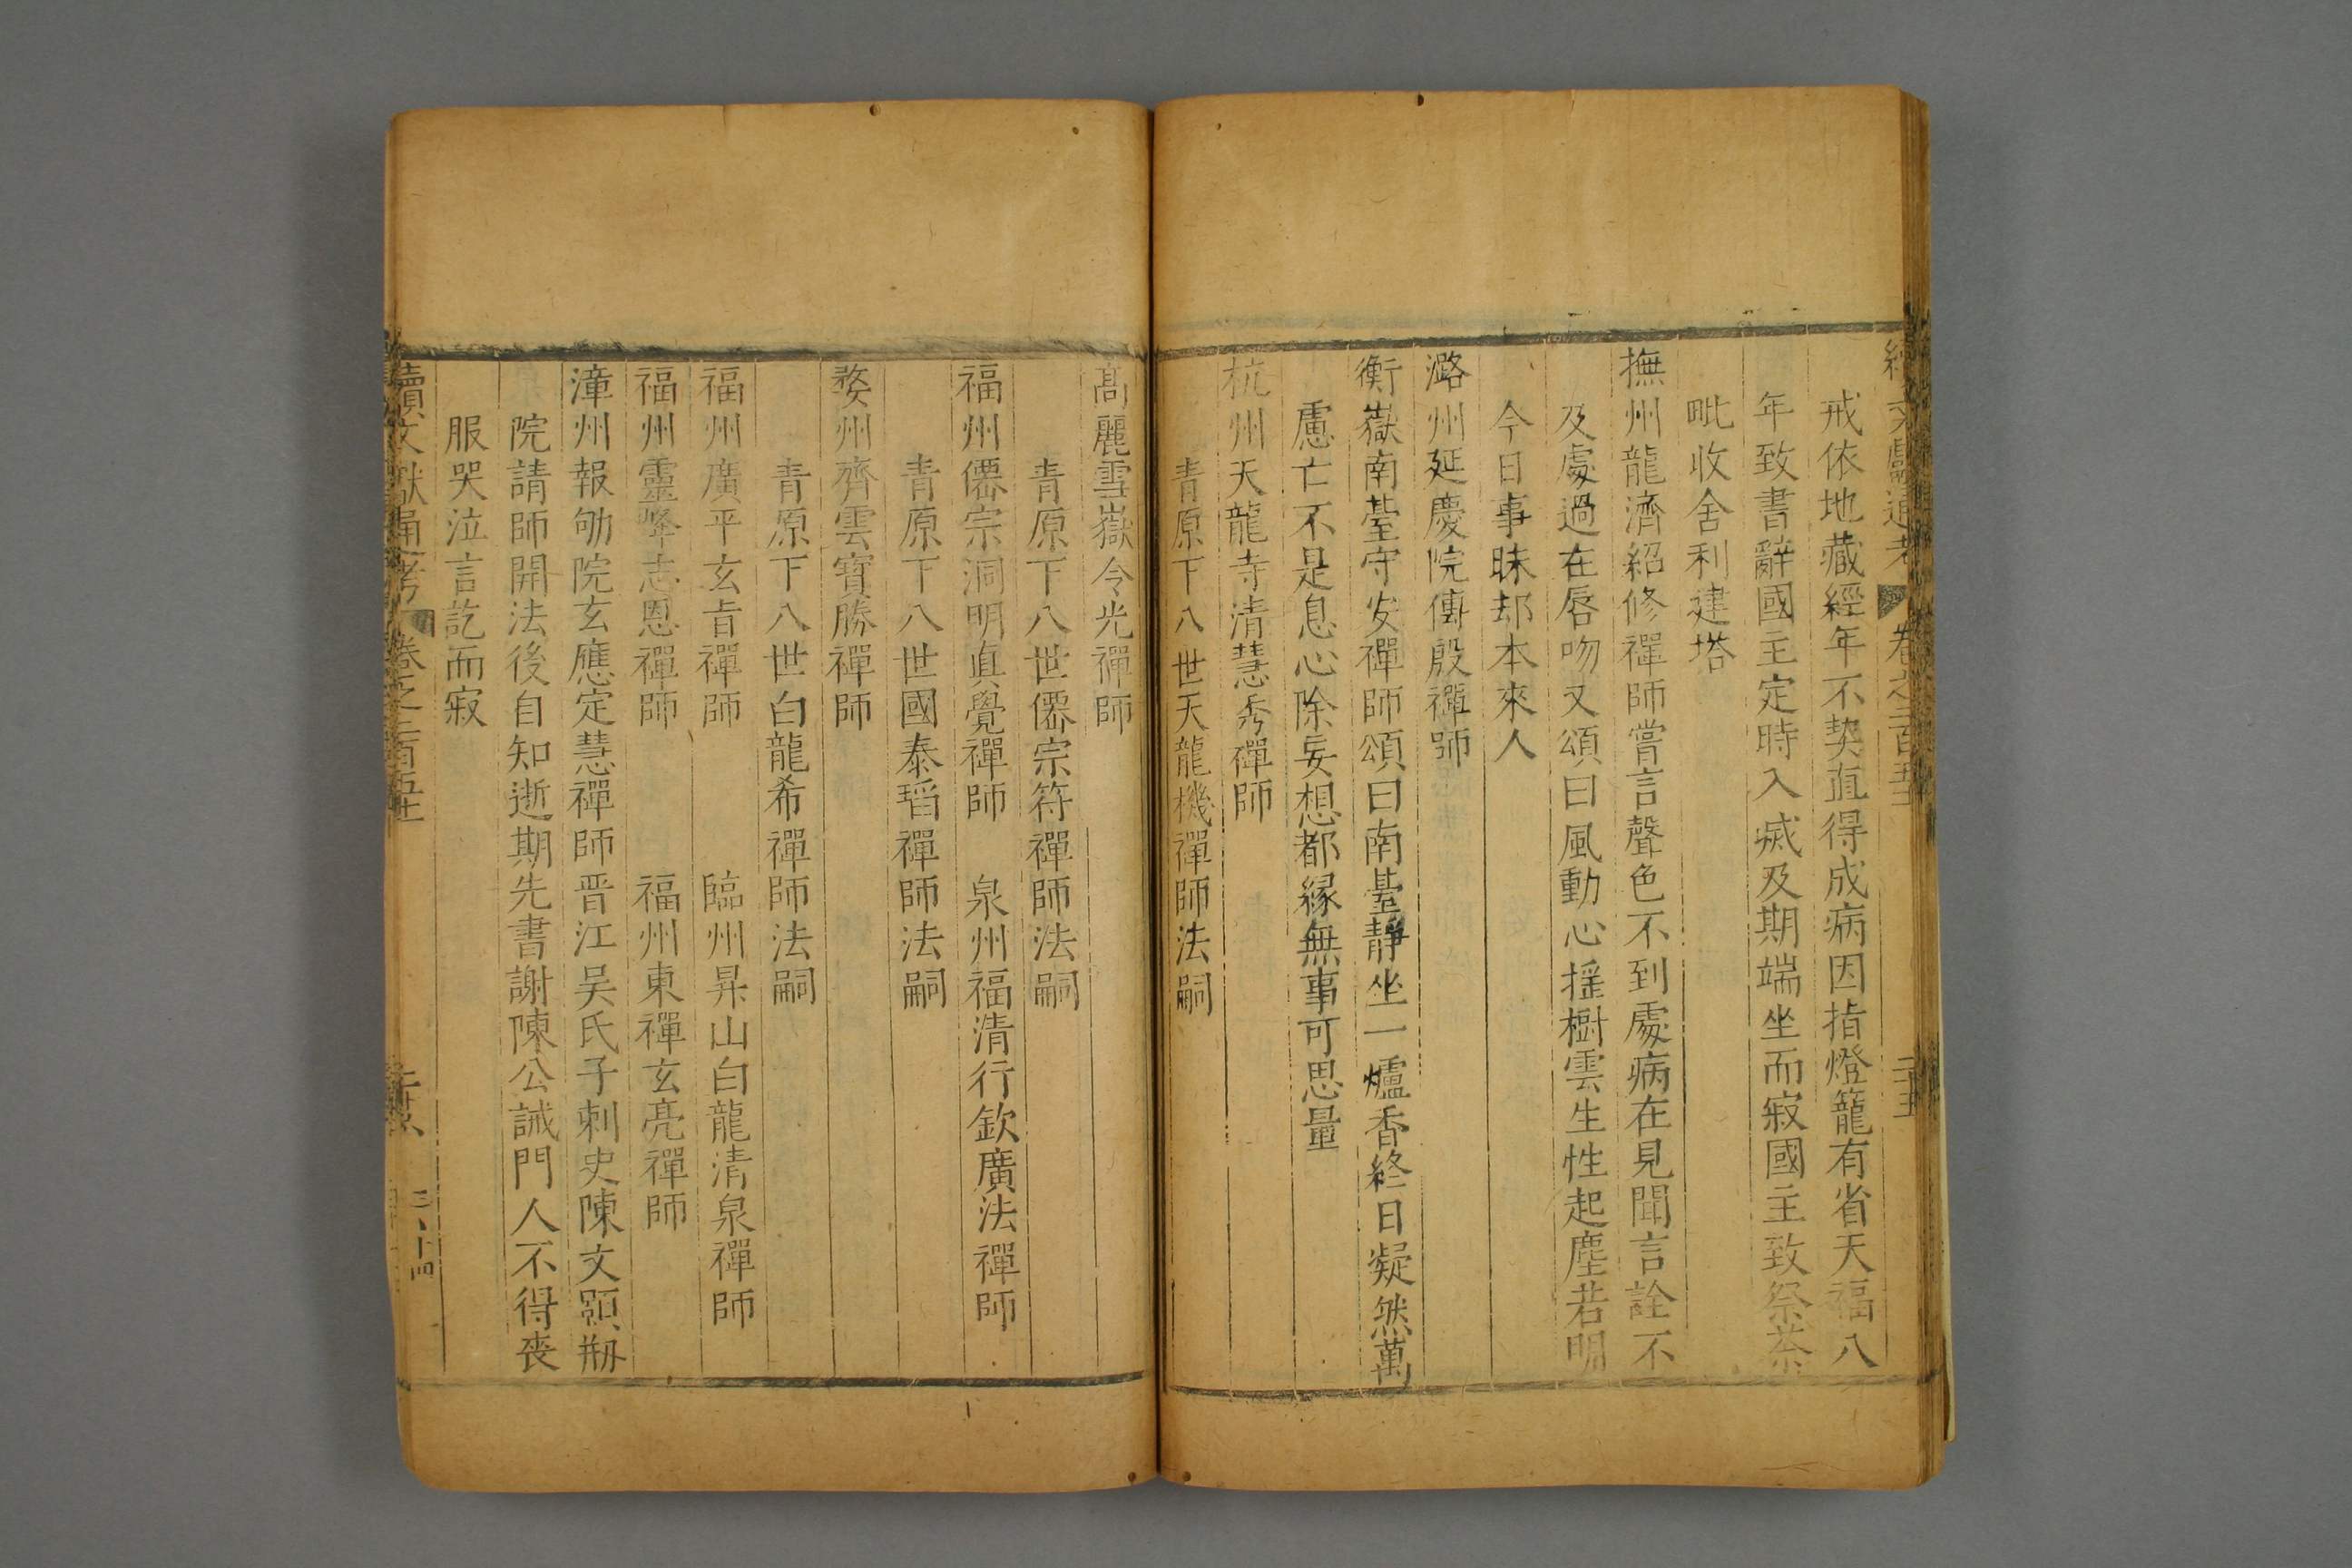 續文獻通考 卷之二百五十
戒依地藏經年不契直得成病因指燈籠有省天福八
年致書辭國主定時入㓕及期端坐而寂國主致祭茶
毗收舍利建塔
撫州龍濟紹修禪師嘗言聲色不到處病在見聞言詮不
及處過在唇吻又頌曰風動心搖樹雲生性起塵若明
今日事昧却本來人
潞州延慶院傳殷禪師
衡嶽南臺守安禪師頌曰南臺靜坐一爐香終日凝然萬
慮亡不是息心除妄想都緣無事可思量
杭州天龍寺清慧秀禪師
青原下八世天龍機禪師法嗣
高麗雪嶽令光禪師
青原下八世僊宗符禪師法嗣
福州僊宗洞明真覺禪師 泉州福清行欽廣法禪師
青原下八世國泰瑫禪師法嗣
婺州齊雲寶勝禪師
青原下八世白龍希禪師法嗣
福州廣平玄旨禪師 臨州昇山白龍清泉禪師
福州靈峰志恩禪師 福州東禪玄亮禪師
漳州報劬院玄應定慧禪師晋江吴氏子刺史陳文顥剏
院請師開法後自知逝期先書謝陳公誡門人不得喪
服哭泣言訖而寂
續文獻通考 卷之二百五十